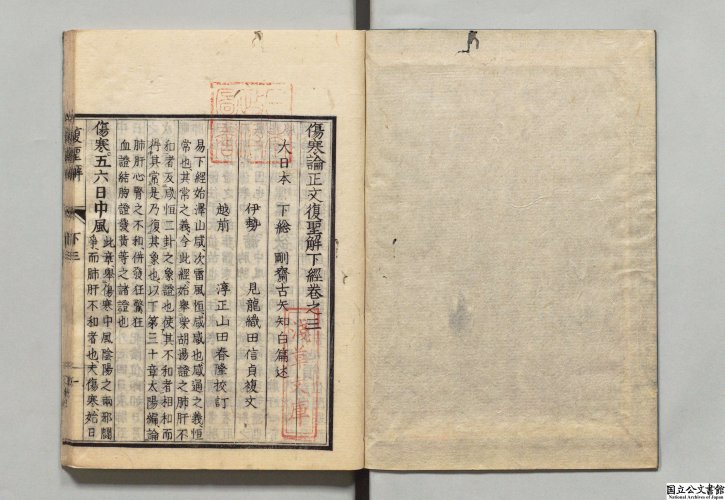 傷寒論正文復聖解下經卷之三
大日本　下總　剛齋古矢知白篇述
伊勢　見龍織田信貞複文
越前　淳正山田春隆校訂
易下經始澤山咸次雷風恒咸感也感通之義恒
常也其常之義今此經始舉柴胡湯證之肺肝不
和者及咸恒二卦之象證也使其不和者相和而
得其常是乃復其象也以丁第三十章太陽編論
肺肝心腎之不和併發狂驚狂
血證結胸證發黃等之諸證也
傷寒五六日中風
此章舉傷寒中風陰陽之兩邪
爭而肺肝不和者也夫傷寒始日
復聖解
下三
淺草文庫
国立公文書館
National Archives of Japan